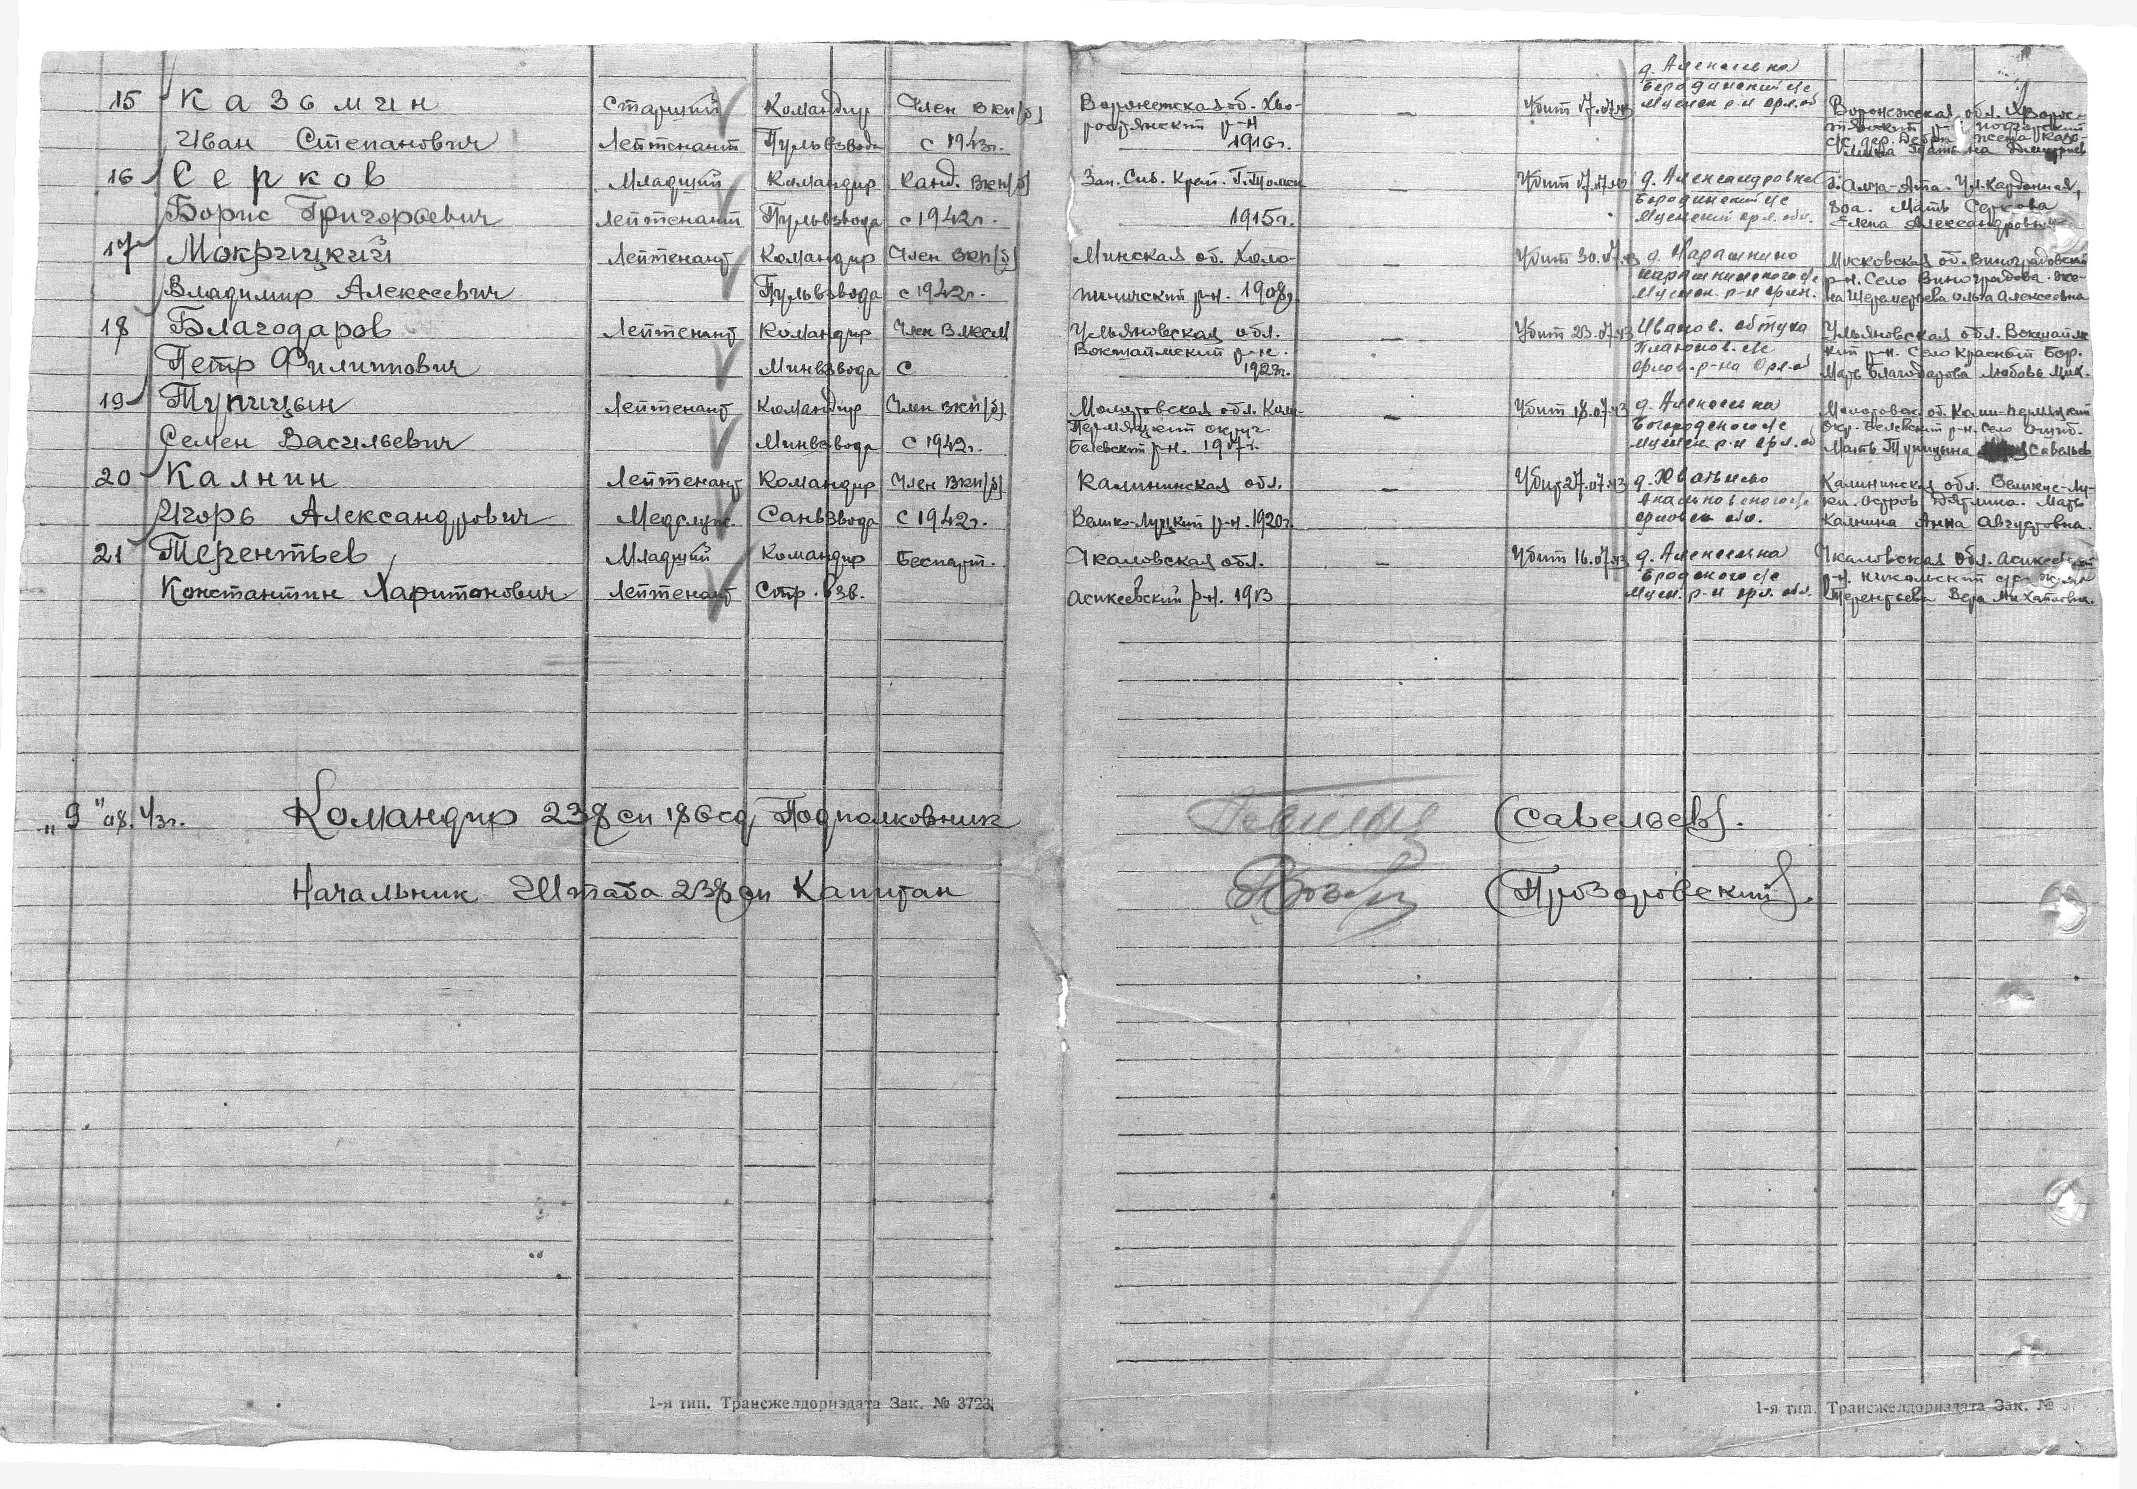 15 Казьмин Старший Командир Член ВКП(б) Воронежская об. Хво- — Убит 17.07.43 д. Алексеевка
Иван Степанович Лейтенант Пульвзвода с 1943г. ростянский р-н 1916г. Воронежская обл.
16 Серков Младший Командир Канд. ВКП(б) Зап. Сиб. Край. Г. Томск — Убит 17.07.43 д. Александровка г. Алма-Ата. Ул. Кардонная,
Борис Григорьевич Лейтенант Пульвзвода с 1942г. 1915г. Мценский орл. обл. 30а. Мать Серкова
Елена Александровна
17 Мокрицкий Лейтенант Командир Член ВКП(б) Минская об. Холо- — Убит 30.07.43 Московская об. Виноградовский
Владимир Алексеевич Пульвзвода с 1942г. пиничский р-н. 1908г р-н. Село Виноградова. Же-
на Шереметьева Ольга Алексеевна
18 Благодаров Лейтенант Командир Член ВЛКСМ Ульяновская обл. — Убит 23.07.43 Иванов. обтуха Ульяновская обл. Вокнайм
Петр Филиппович Минвзвода с Вокнаймский р-н. 1923г. Платонов. с/с кий р-н. Село Красный Бор.
орлов. р-на Орл. об Мать Благодарова Любовь Мих.
19 Тупицын Лейтенант Командир Член ВКП(б) Молотовская обл. Коми- — Убит 18.07.43 д. Алексеевка Молотовск. об. Коми-Пермяцкий
Семен Васильевич Минвзвода с 1942г. Пермяцкий округ Богородского с/с окр. Белевский р-н. Село
Белевский р-н. 1917г. Мценск. р-н орл. об Мать Тупицына Савельев
20 Калнин Лейтенант Командир Член ВКП(б) Калининская обл. — Убит 27.07.43 Калининская обл. Великие-Лу-
Игорь Александрович Медслуж. Санвзвода с 1942г. Велико-Лукский р-н. 1920г. ки. Остров Дятлина. Мать
орловск обл. Калнина Анна Августовна.
21 Терентьев Младший Командир Беспарт. Чкаловская обл. — Убит 16.07.43 д. Алексеевка Чкаловская обл. Асикеевский
Константин Харитонович Лейтенант Стр. взв. Асикеевский р-н. 1913 р-н. Никольский с/с
Мцен. р-н орл. обл. Терентьева Вера
„9" 08. 43г. Командир 238 сп 186 сд Подполковник (Савельев).
Начальник Штаба 238 сп Капитан (Прозоровский).
1-я тип. Трансжелдориздата Зак. № 3723
1-я тип. Трансжелдориздата Зак. №